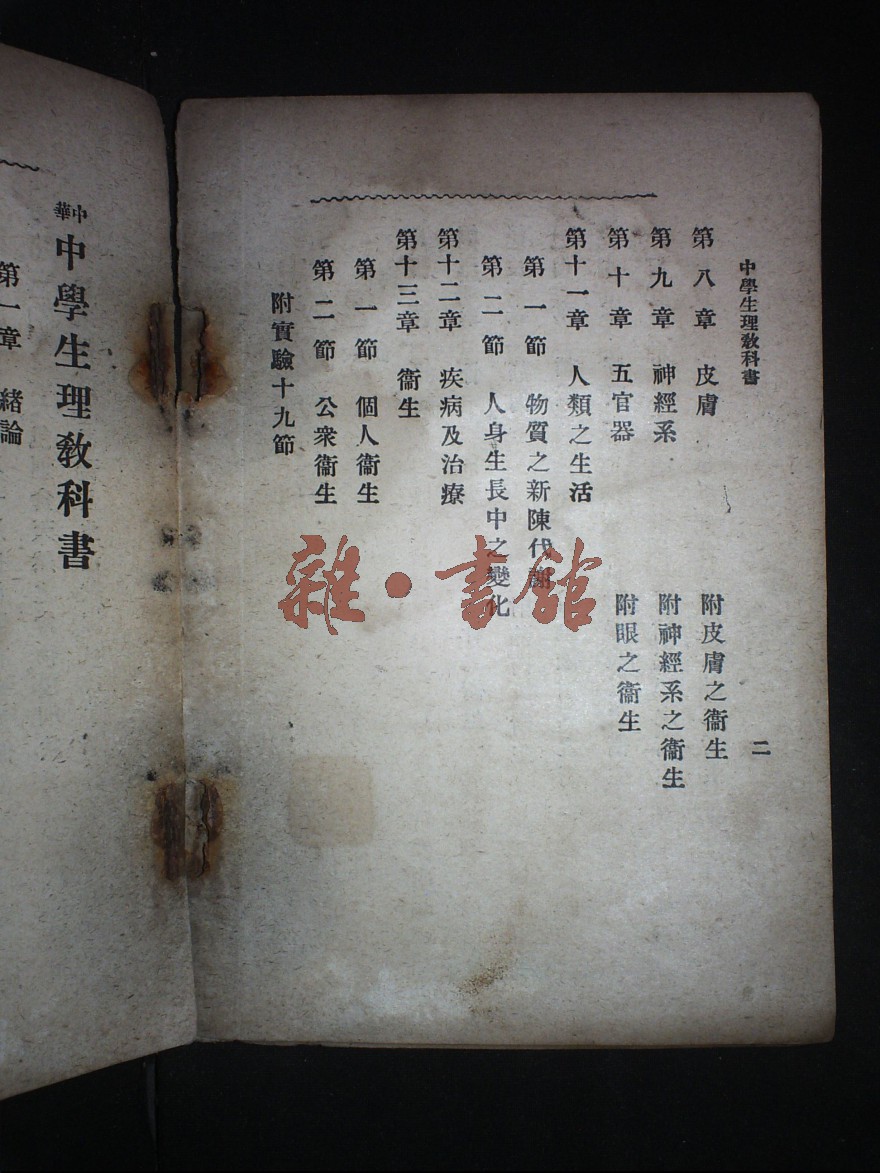 中學生理敎科書
二
第八章 皮膚 附皮膚之衞生
第九章 神經系 附神經系之衞生
第十章 五官器 附眼之衞生
第十一章 人類之生活
第一節 物質之新陳代謝
第二節 人身生長中之變化
第十二章 疾病及治療
第十三章 衞生
第一節 個人衞生
第二節 公衆衞生
附實驗十九節
中華
中學生理敎科書
第一章 緖論
雜·書館